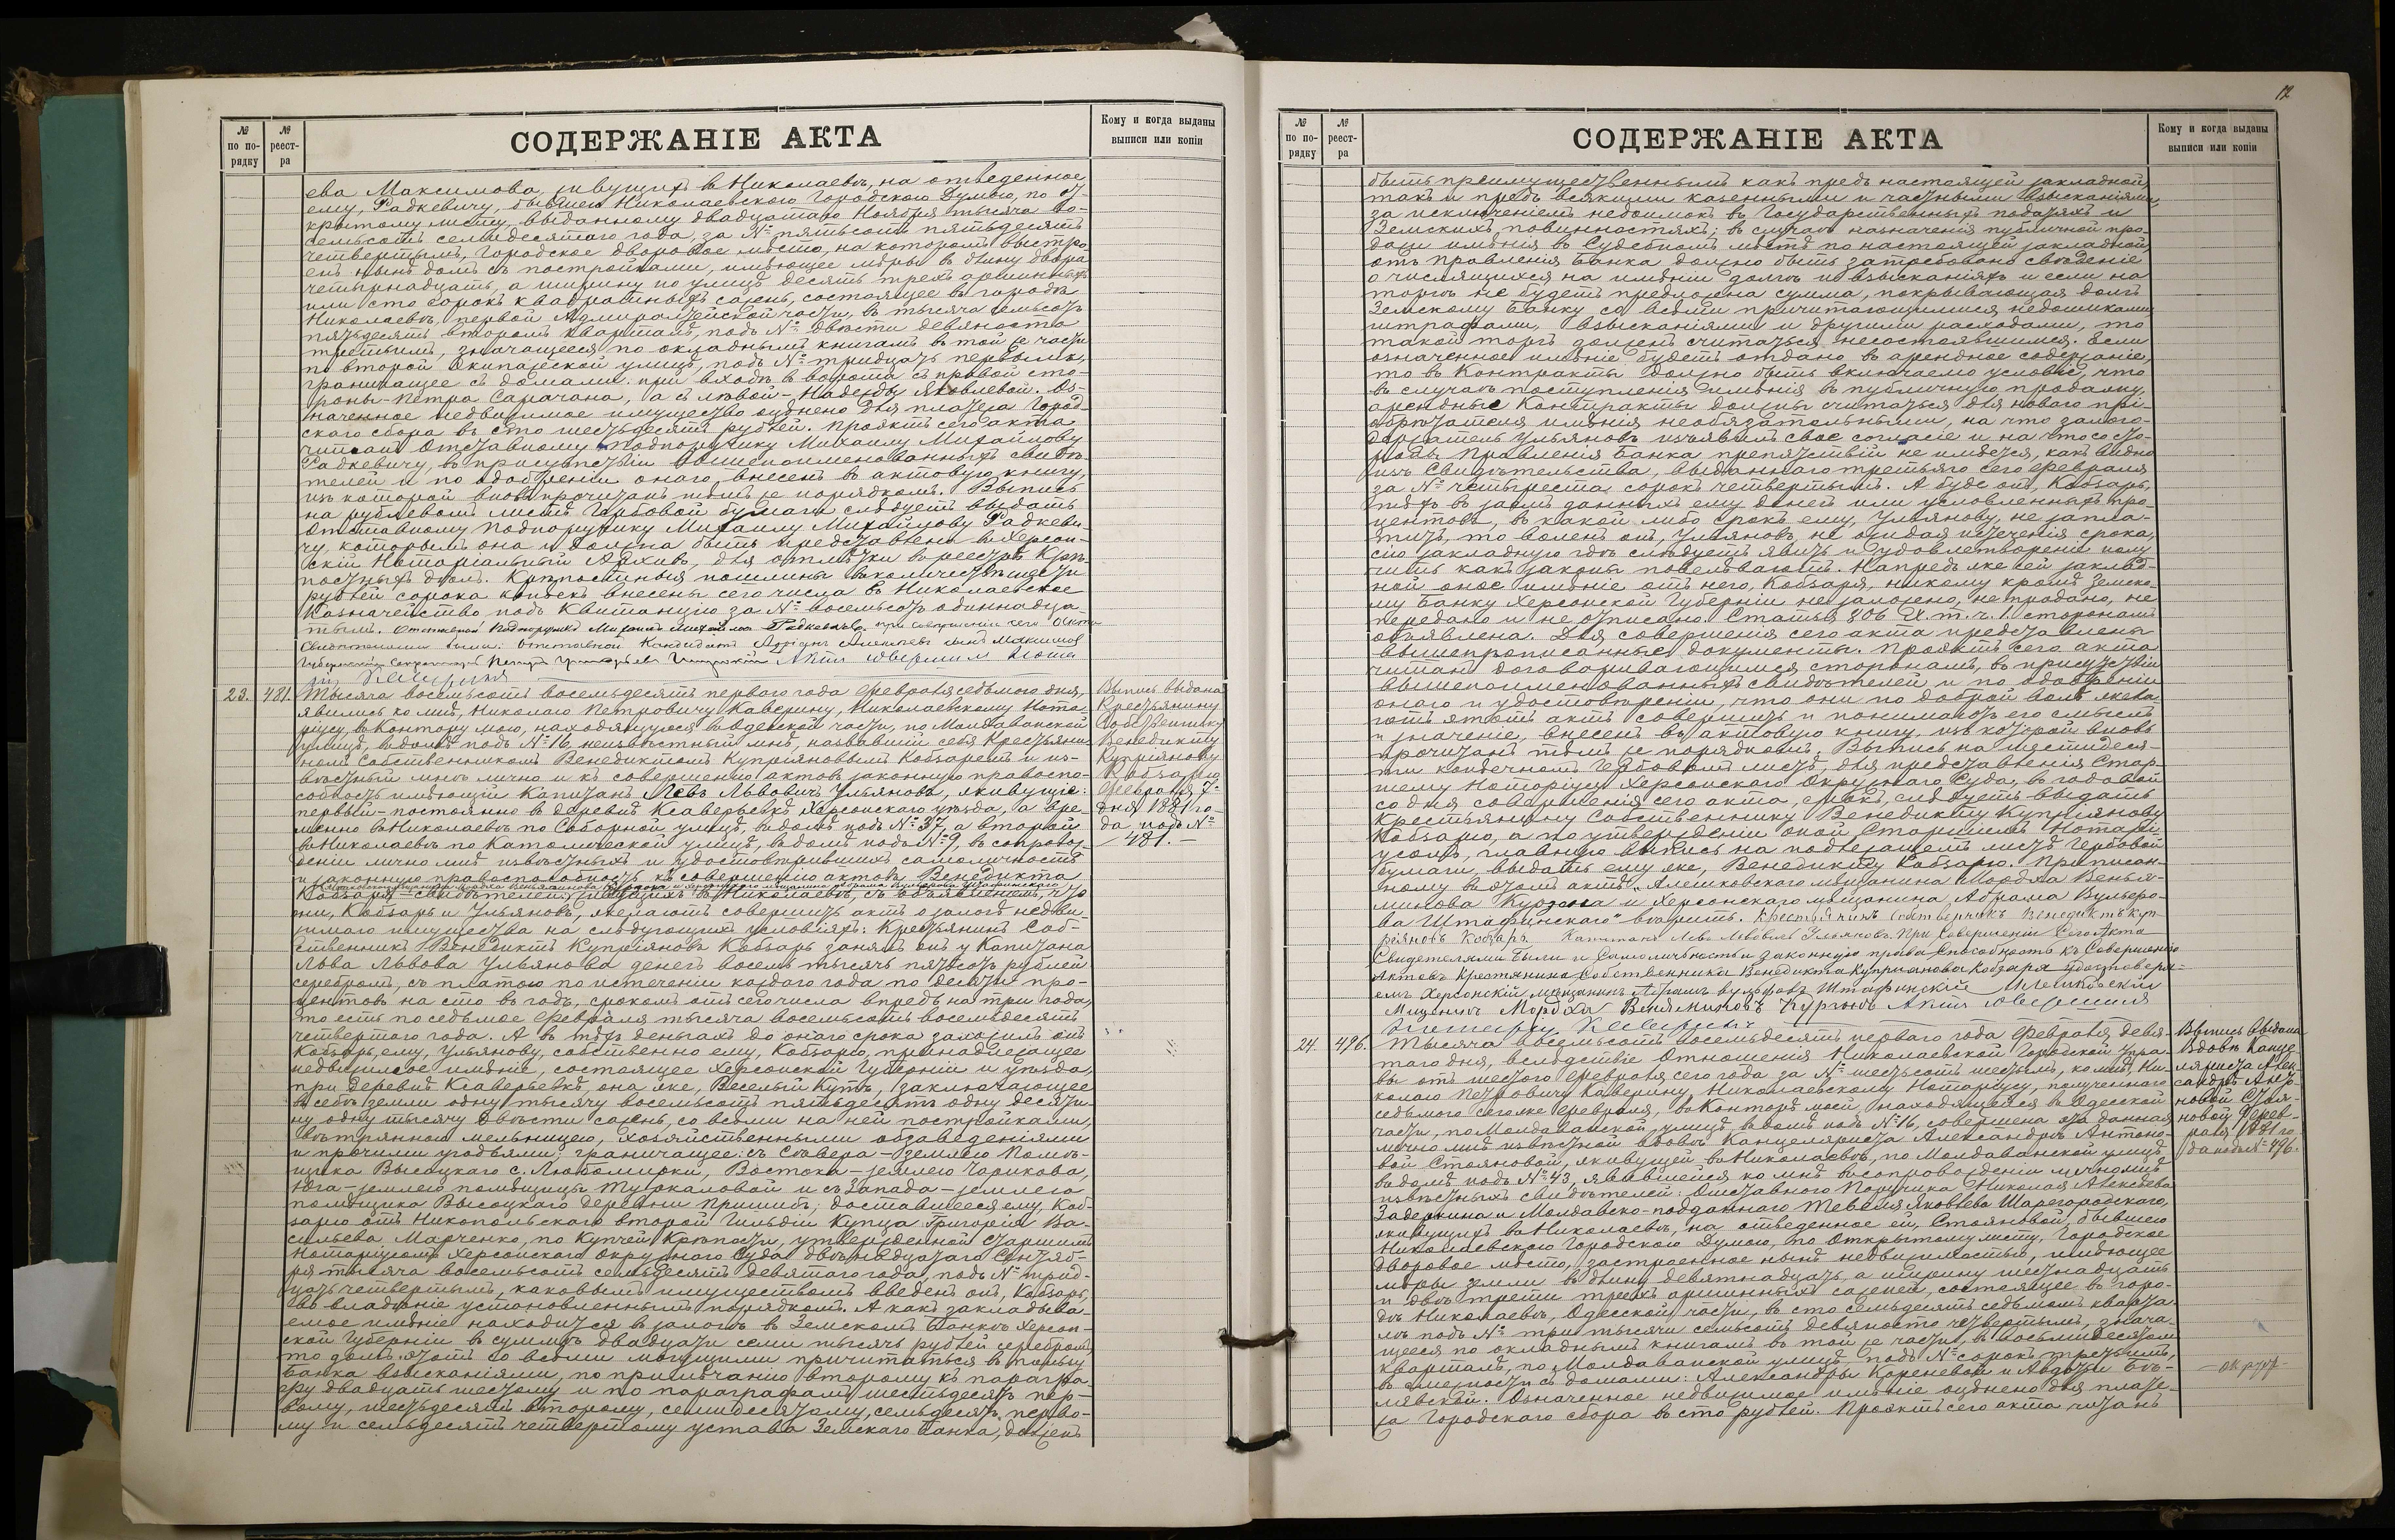 № по порядку
№ реестра
СОДЕРЖАНІЕ АКТА
Кому и когда выданы выписи или копіи
ева Максимова, живущих в Николаевѣ, на отведенное
ему, Радкевичу, бывшею Николаевскою Городскою Думою, по от-
крытому листу, выданному двадцатаго Ноября тысяча во-
семьсотъ семидесятаго года, за № пятьсотъ пятьдесятъ
четвертымъ, Городское дворовое мѣсто, на которомъ выстро-
енъ нынѣ домъ съ постройками, имѣющее мѣры в длину двора
четырнадцать, а ширину по улицѣ десять трехъ аршинныхъ
или сто сорокъ квадратныхъ сажень, состоящее въ городѣ
Николаевѣ, первой Адмиралтейской части, въ
пятьдесятъ второмъ кварталѣ, подъ № двѣсти девяносто
третьимъ, значащееся по окладнымъ книгамъ в той же части
по второй Экипажеской улицѣ, подъ № тридцать первымъ,
граничащее съ домами: при входѣ в ворота съ правой сто-
роны Петра Сарачана, а съ лѣвой – Надежды Яковлевой. Оз-
наченное недвижимое имущество оцѣнено для платежа Город-
скаго сбора въ сто шестьдесятъ рублей. Проэктъ сего акта
читанъ Отставному Подпоручику Михаилу Михайлову
Радкевичу, въ присутствіи вышепоименованныхъ свидѣ-
телей и по одобреніи онаго, внесенъ в актовую книгу,
изъ которой вновь прочитанъ тѣмъ же порядкомъ. Выпись
на рублевомъ листѣ Гербовой бумаги слѣдуетъ выдать
Отставному Подпоручику Михаилу Михайлову Радкеви-
чу, которымъ она и должна быть представлена въ Херсон-
скій Нотаріальный Архивъ, для отмѣтки в реестрѣ Крѣ-
постныхъ дѣлъ. Крѣпостныя пошлины въ количествѣ шести
рублей сорока копѣекъ внесены сего числа в Николаевское
Казначейство подъ квитанцію за № восемьсотъ одиннадца-
тымъ. Отставной Подпоручикъ Михаилъ Михайловъ Радкевичъ, при совершеніи сего Акта
Свидетелями были: Отставной Кандидатъ Максимов
Губернскій Секретарь Актъ совершилъ Нота
ріусъ Каверинъ
23. 481. Тысяча восемьсотъ восемьдесятъ перваго года Февраля седьмого дня,
явились ко мнѣ, Николаю Петровичу Каверину, Николаевскому Нота-
ріусу, въ Контору мою, находящуюся въ Одесской части, по Молдаванской
улицѣ, в домѣ подъ № 16, неизвѣстный мнѣ, назвавшій себя Крестьяни-
номъ Собственникомъ Венедиктомъ Купріяновымъ Кобзаремъ и из-
вѣстный мнѣ лично и къ совершенію актовъ законную правоспо-
собность имѣющій Капитанъ Левъ Львовичъ Ульяновъ, живущіе:
первый – постоянно в деревнѣ Ксаверьевкѣ Херсонскаго уѣзда, а вре-
менно в Николаевѣ по Соборной улицѣ, в домѣ подъ № 37, а второй
в Николаевѣ по Католической улицѣ, в домѣ подъ № 9, въ сопровож-
деніи лично мнѣ извѣстныхъ и удостовѣрившихъ самоличность
и законную правоспособность къ совершенію актовъ Венедикта
Алешковскаго мѣщанина Мордха Веньяминова Курзона и Херсонскаго мѣщанина Абрама Вульфова Штафинскаго
Кобзаря свидѣтелей, живущихъ в Николаевѣ, съ объявленіемъ, что
они, Кобзарь и Ульяновъ, желаютъ совершить актъ о залогѣ недви-
жимаго имущества на слѣдующихъ условіяхъ: Крестьянинъ Соб-
ственникъ Венедиктъ Купріяновъ Кобзарь занялъ онъ у Капитана
Льва Львова Ульянова денегъ восемь тысячъ пятьсотъ рублей
серебромъ, съ платою по истеченіи каждаго года по десяти про-
центовъ на сто въ годъ, срокомъ отъ сего числа впредь на три года,
то есть по седьмое Февраля тысяча восемьсотъ восемьдесятъ
четвертаго года. А в тѣхъ деньгахъ до онаго срока заложилъ онъ
Кобзарь, ему, Ульянову, собственно ему, Кобзарю, принадлежащее
недвижимое имѣніе, состоящее Херсонской Губерніи и уѣзда,
при деревнѣ Ксаверьевкѣ, она же, Веселый Кутъ, заключающее
в себѣ земли одну тысячу восемьсотъ пятьдесятъ одну десяти-
ну одну тысячу двѣсти сажень, со всѣми на ней постройками,
вѣтрянною мельницею, хозяйственными обзаведеніями
и прочими угодьями; граничащее: съ Сѣвера – землею Помѣ-
щика Высоцкаго с. Любомирки, Востока – землею Чарикова,
Юга – землею помѣщицы Тушкаловой и съ Запада – землею
помѣщика Высоцкаго деревни Пришибъ, доставшееся ему, Коб-
зарю отъ Никопольскаго второй Гильдіи Купца Григорія Ва-
сильева Марченко, по Купчей Крѣпости, утвержденной Старшимъ
Нотаріусомъ Херсонскаго Окружнаго Суда двѣнадцатаго Сентяб-
ря тысяча восемьсотъ семьдесятъ девятаго года, подъ № трид-
цать четвертымъ, каковымъ имуществомъ введенъ онъ, Кобзарь,
во владѣніе установленнымъ порядкомъ. А какъ закладыва-
емое имѣніе находится в залогѣ в Земскомъ Банкѣ Херсон-
ской Губерніи в суммѣ двадцати семи тысячъ рублей серебромъ,
то долгъ этотъ со всѣми могущими причитаться в пользу
Банка взысканіями, по примѣчанію второму къ парагра-
фу двадцать шестому и по параграфамъ шестьдесятъ пер-
вому, шестьдесятъ второму, семидесятому, семьдесятъ перво-
му и семьдесятъ четвертому устава Земскаго Банка, долженъ
Выпись выдана
Крестьянину
Собственнику
Венедикту
Купріянову
Кобзарю
Февраля 7
дня 1881 го-
да подъ №
481. –
12
№ по порядку
№ реестра
СОДЕРЖАНІЕ АКТА
Кому и когда выданы выписи или копіи
быть преимущественнымъ какъ предъ настоящей закладной,
такъ и предъ всякими казенными и частными взысканіями,
за исключеніемъ недоимокъ въ Государственныхъ податяхъ и
Земскихъ повинностяхъ; в случаѣ назначенія публичной про-
дажи имѣнія в Судебномъ мѣстѣ по настоящей закладной,
отъ Правленія Банка должно быть затребовано свѣденіе
о числящихся на имѣніи долгѣ и взысканіяхъ и если на
торгѣ не будетъ предложена сумма, покрывающая долгъ
Земскому Банку со всѣми причитающимися недоимками
штрафами, взысканіями и другими расходами, то
такой торгъ долженъ считаться несостоявшимся. Если
означенное имѣніе будетъ отдано в арендное содержаніе,
то в Контракты должно быть включаемо условіе, что
в случаѣ поступленія имѣнія в публичную продажу,
арендные Контракты должны считаться для новаго прі-
обрѣтателя имѣнія необязательными, на что залого-
держатель Ульяновъ изъявилъ свое согласіе и на что со сто-
роны Правленія Банка препятствій не имѣется, какъ видно
изъ Свидѣтельства, выданнаго третьяго сего Февраля
за № четыреста сорокъ четвертымъ. А буде онъ, Кобзарь,
тѣхъ в заемъ данныхъ ему денегъ или условленныхъ про-
центовъ, в какой либо срокъ ему, Ульянову, не запла-
титъ, то воленъ онъ, Ульяновъ, не ожидая истеченія срока,
сію закладную гдѣ слѣдуетъ явить и удовлетвореніе полу-
чить какъ законы повелѣваютъ. Напредъ же сей заклад-
ной оное имѣніе отъ него, Кобзаря, никому кромѣ Земско-
му Банку Херсонской Губерніи не заложено, не продано, не
передано и не описано. Статья 306 X. т. ч. 1. сторонамъ
объявлена. Для совершенія сего акта представлены
вышепрописанные документы. Проэктъ сего акта
читанъ договаривающимся сторонамъ, в присутствіи
вышепоименованныхъ свидѣтелей и по одобреніи
онаго и удостовѣреніи, что они по доброй волѣ жела-
ютъ этотъ актъ совершить и понимаютъ его смыслъ
и значеніе, внесенъ въ актовую книгу, изъ которой вновь
прочитанъ тѣмъ же порядкомъ. Выпись на шестидеся-
ти копѣечномъ Гербовомъ листѣ, для представленія Стар-
шему Нотаріусу Херсонскаго Окружнаго Суда, в годовой
со дня совершенія сего акта, срокъ, слѣдуетъ выдать
Крестьянину Собственнику Венедикту Купріянову
Кобзарю, а по утвержденіи оной Старшимъ Нотарі-
усомъ, главную выпись на подлежащемъ листѣ Гербовой
бумаги, выдать ему же, Венедикту Кобзарю. Приписан-
ному в этомъ актѣ: „Алешковскаго мѣщанина Мордха Венья-
минова Курзона и Херсонскаго мѣщанина Абрама Вульфо-
ва Штафинскаго" вѣрить. Крестьянинъ Собственникъ Венедиктъ Куп-
ріяновъ Кобзарь Капитанъ Левъ Львовичъ Ульяновъ. При Совершении Сего Акта
Свидетелями были и Самоличность и законную права способность къ Совершению
Актовъ Крестянина Собственника Венедикта Куприянова Кобзаря удостоверя-
емъ Херсонскій мѣщанинъ Абрамъ Вульфовъ Штафинскій Алешковскій
Мещанинъ Мордхъ Веняминовъ Курзонъ Актъ совершилъ
Нотаріусъ Каверинъ
24. 496. Тысяча восемьсотъ восемьдесятъ перваго года Февраля девя-
таго дня, вслѣдствіе Отношенія Николаевской Городской Упра-
вы отъ шестого Февраля сего года за № шестьсотъ шестымъ, ко мнѣ, Ни-
колаю Петровичу Каверину, Николаевскому Нотаріусу, полученнаго
седьмого сего же Февраля, в Конторѣ моей, находящейся въ Одесской
части, по Молдаванской улицѣ, в домѣ подъ № 16, совершена эта данная
лично мнѣ извѣстной вдовѣ Канцеляриста Александрѣ Антоно-
вой Стояновой, живущей в Николаевѣ, по Молдаванской улицѣ
в домѣ подъ № 43, явившейся ко мнѣ в сопровожденіи лично мнѣ
извѣстныхъ свидѣтелей: Отставного Поручика Николая Алексѣева
Задеркина и Молдавско-подданнаго Тевеля Яковлева Шарегородскаго,
живущихъ в Николаевѣ, на отведенное ей, Стояновой, бывшею
Николаевскою Городскою Думою, по Открытому листу, Городское
дворовое мѣсто, застроенное нынѣ недвижимостью, имѣющее
мѣры земли в длину девятнадцать, а ширину шестнадцать
и двѣ трети трехъ аршинныхъ сажень, состоящее в горо-
дѣ Николаевѣ, Одесской части, въ сто семьдесятъ седьмомъ кварта-
лѣ подъ № три тысячи семьсотъ девяносто четвертымъ, знача-
щееся по окладнымъ книгамъ в той же части, в восьмидесятомъ
кварталѣ, по Молдаванской улицѣ, подъ № сорокъ третьимъ,
въ смежности съ домами: Александры Кореневой и Авдотьи Бѣ-
лявской. Означенное недвижимое имѣніе оцѣнено для плате-
жа Городскаго сбора въ сто рублей. Проэктъ сего акта читанъ
Выпись выдана
Вдовѣ Канце-
ляриста Алек-
сандрѣ Анто-
новой Стоя-
новой 9 Фев-
раля 1881 го-
да подъ № 496.